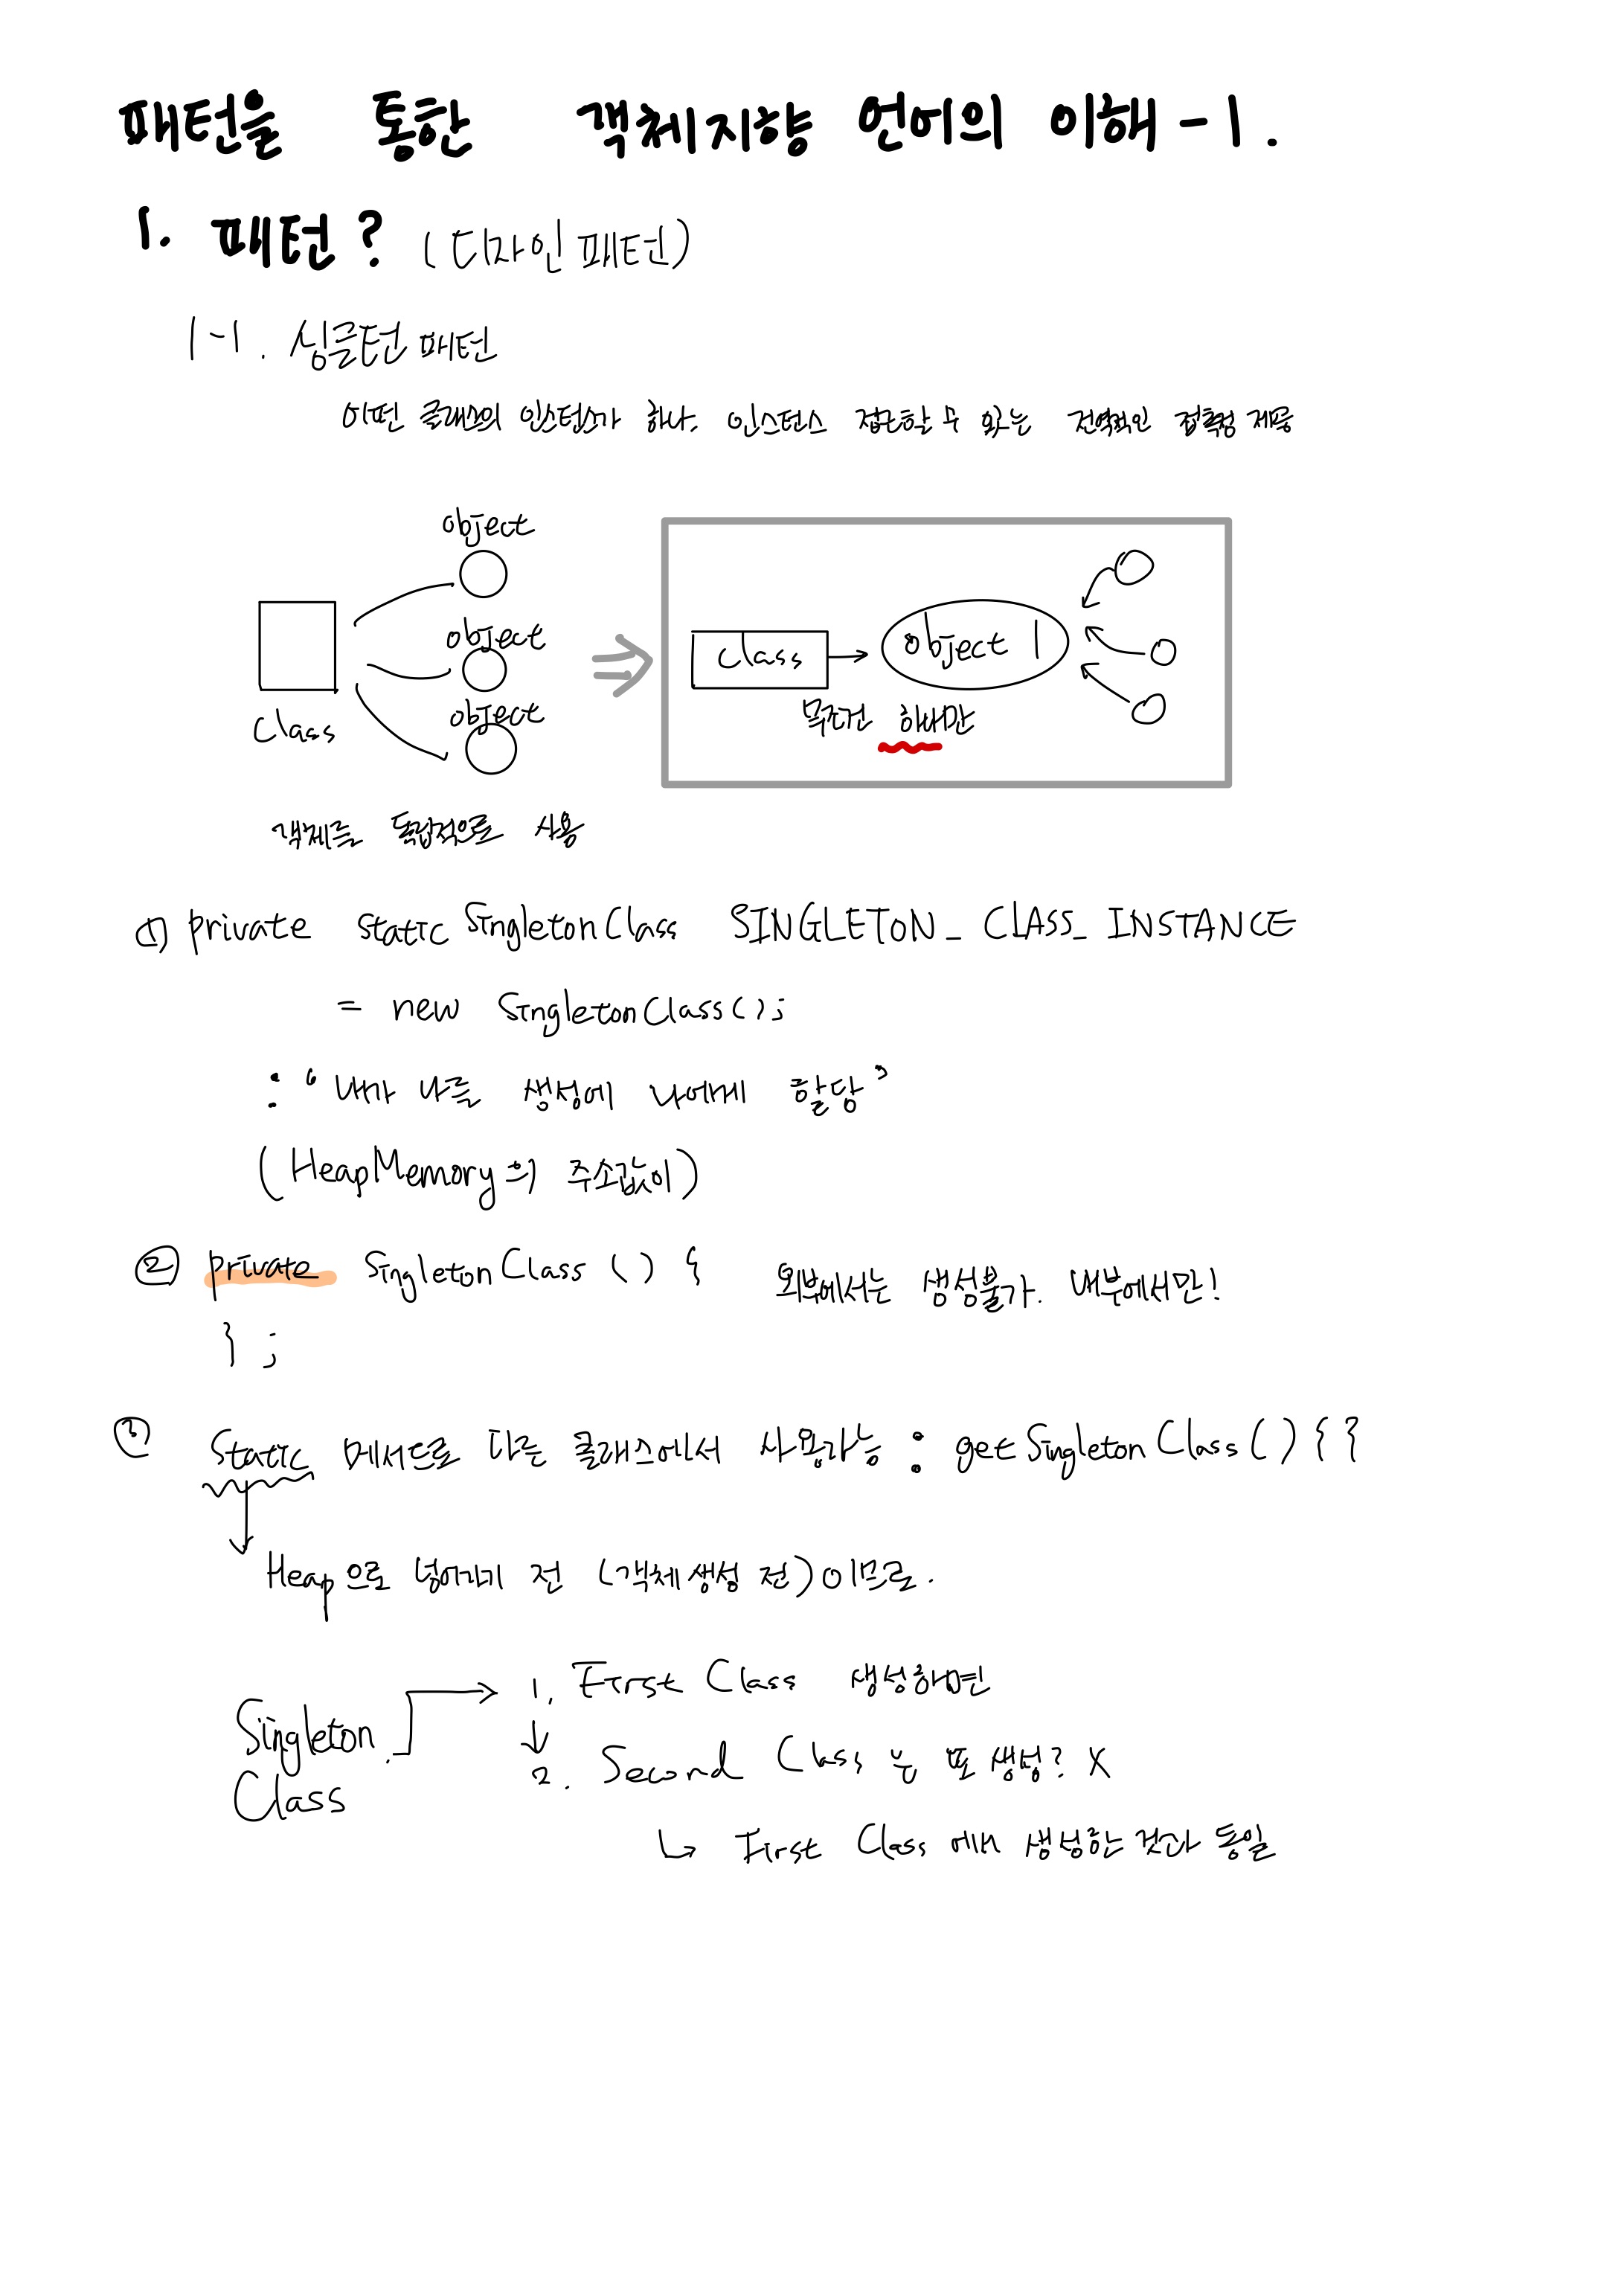 패턴을 통한 객체지향 언어의 이해 - 1.
1. 패턴? (디자인 패턴)
1-1. 싱글턴 패턴
어떤 클래스의 인스턴스가 하나. 인스턴스 접근할 수 있는 전역적인 접촉점 제공
object
object
object
Class
객체를 독립적으로 사용
Class
object 1
무조건 하나만
① private static SingletonClass SINGLETON_CLASS_INSTANCE
= new SingletonClass();
: "내가 나를 생성에 나에게 할당"
(HeapMemory의 주소값이)
② private SingletonClass () { 외부에서는 생성불가. 내부에서만!
} ;
③ Static 메서드로 다른 클래스에서 사용가능 : getSingletonClass () { }
Heap으로 넘어가기 전 (객체 생성 전)이므로.
Singleton
Class
1. First Class 생성하면
2. Second Class 는 또 생성? X
First Class 에서 생성한 것과 동일